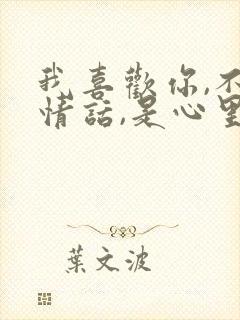 我喜歡你,不
情話,是心里
葉文波